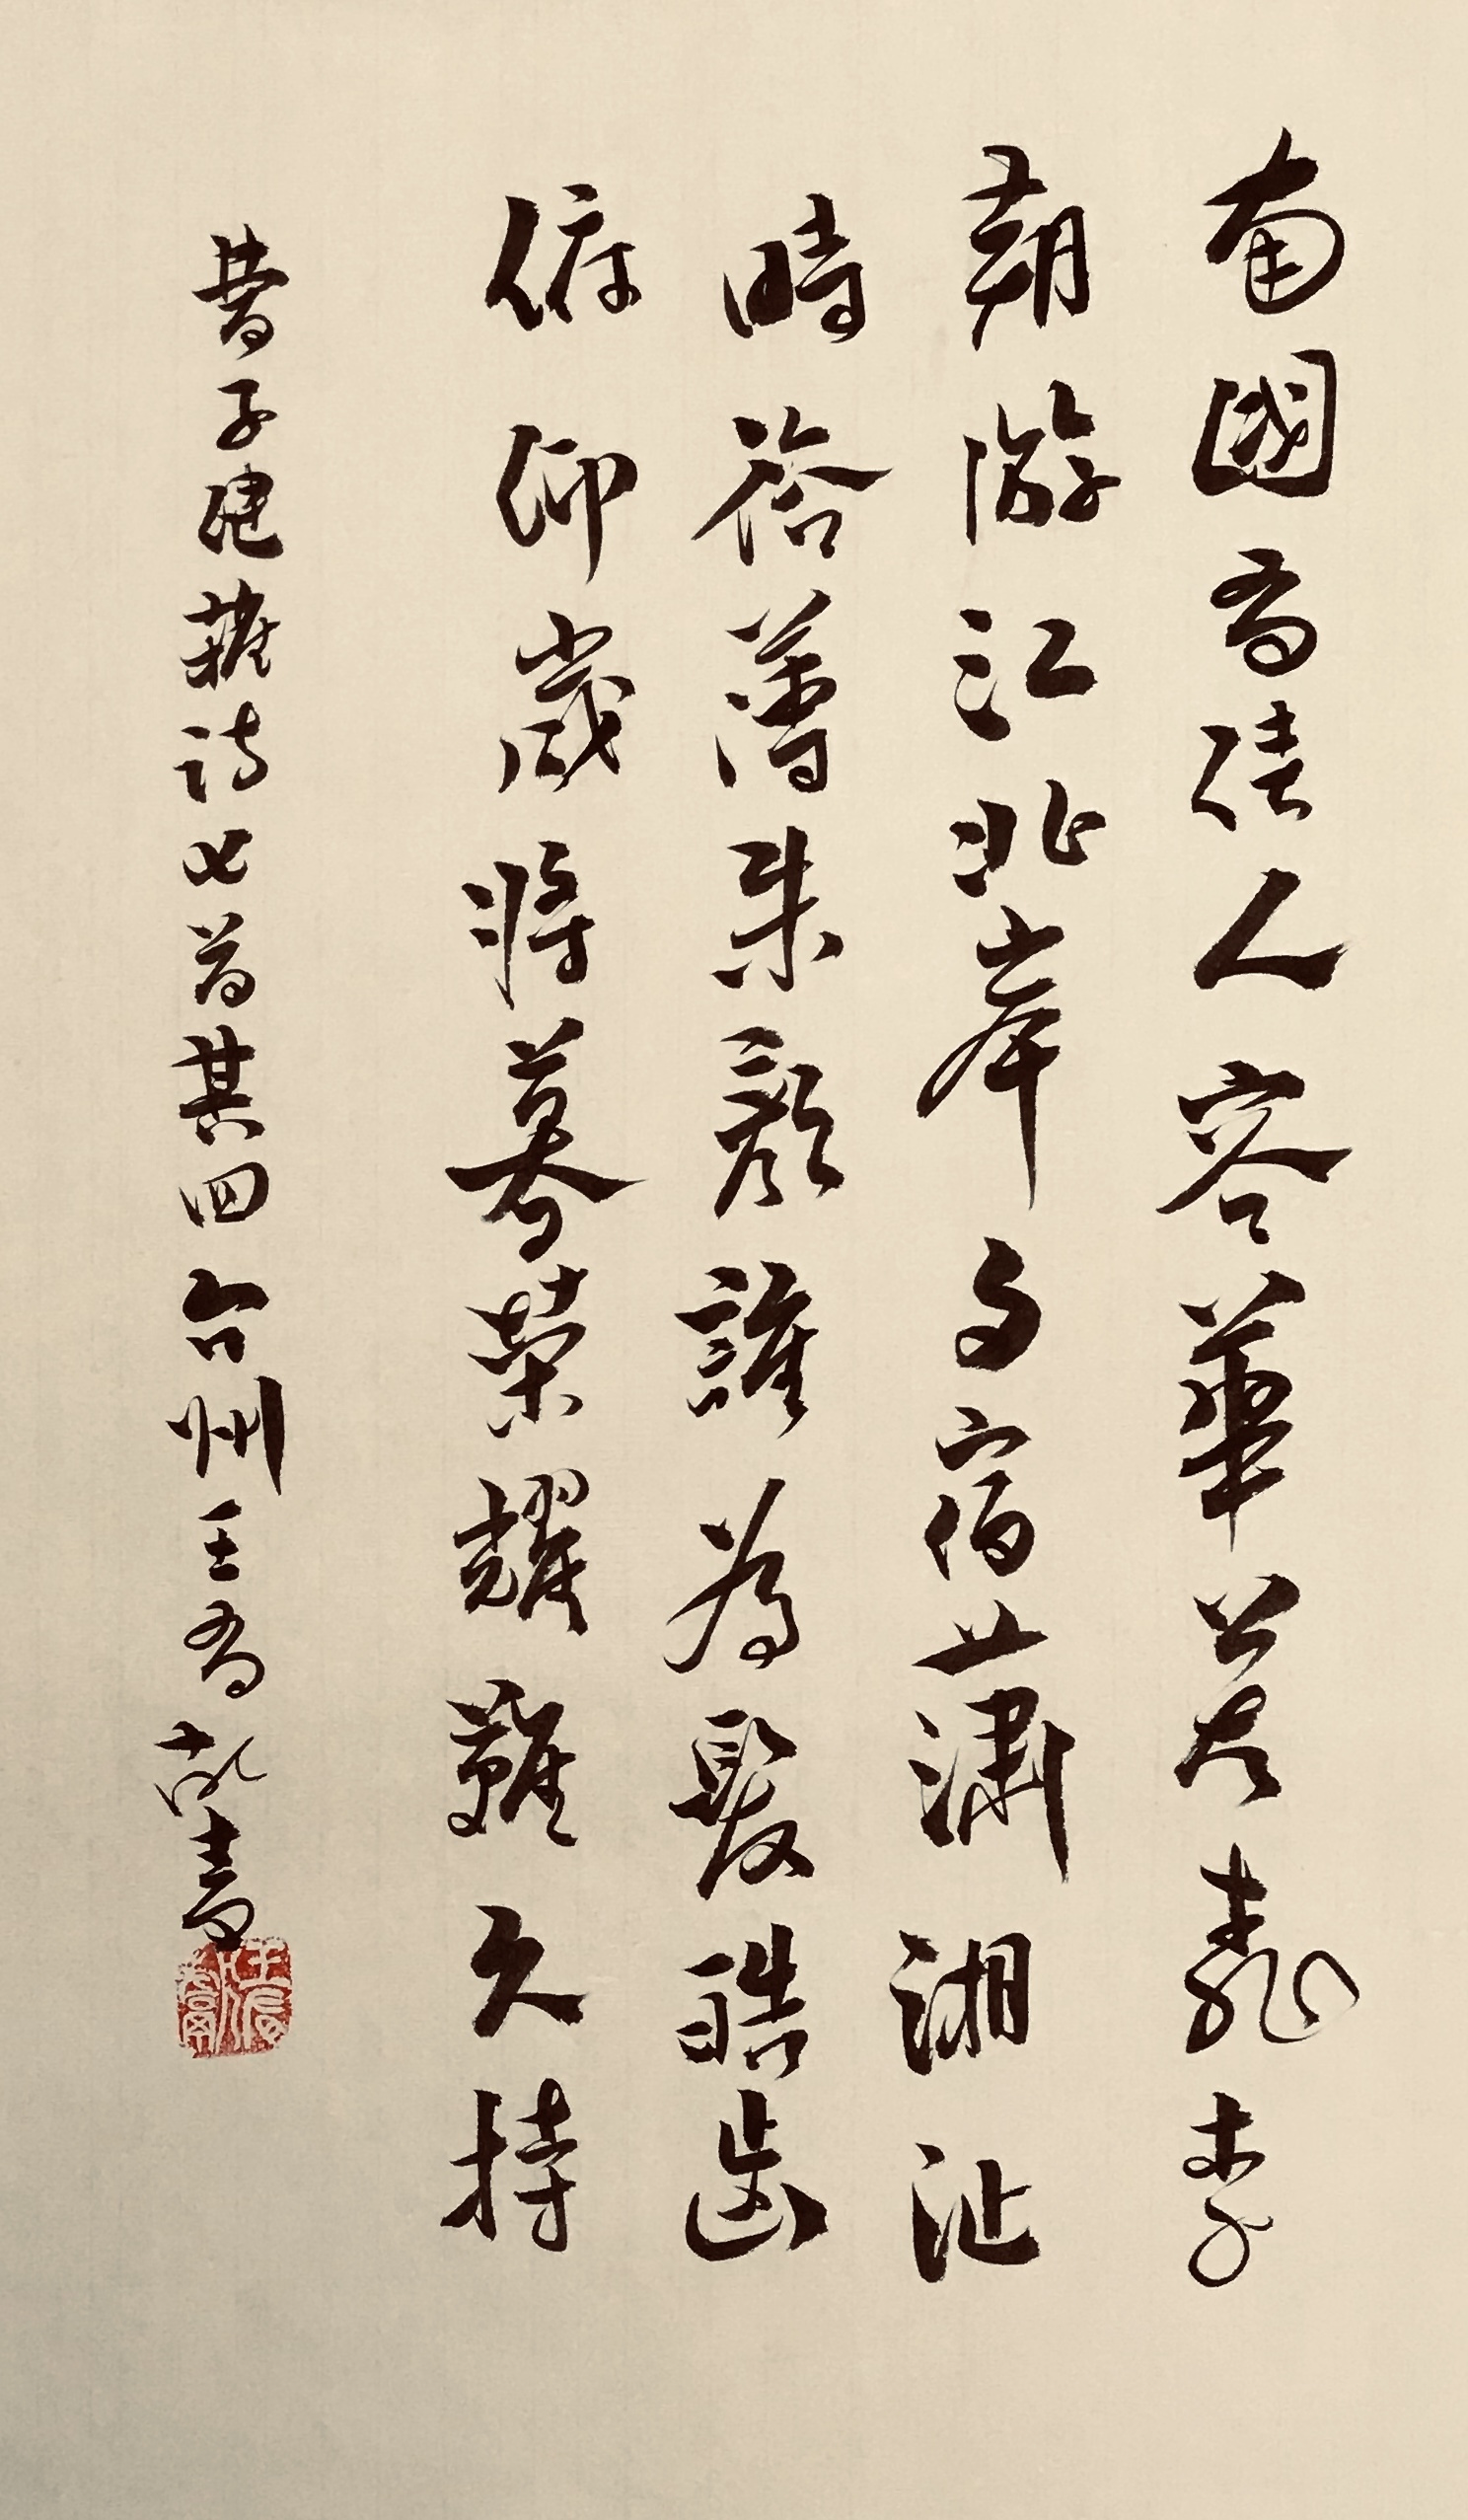 南國有佳人容華若桃李
朝游江北岸夕宿瀟湘沚
時俗薄朱顏誰為發皓齒
俯仰歲將暮榮耀難久持
曹子建雜詩七首其四台州王有書